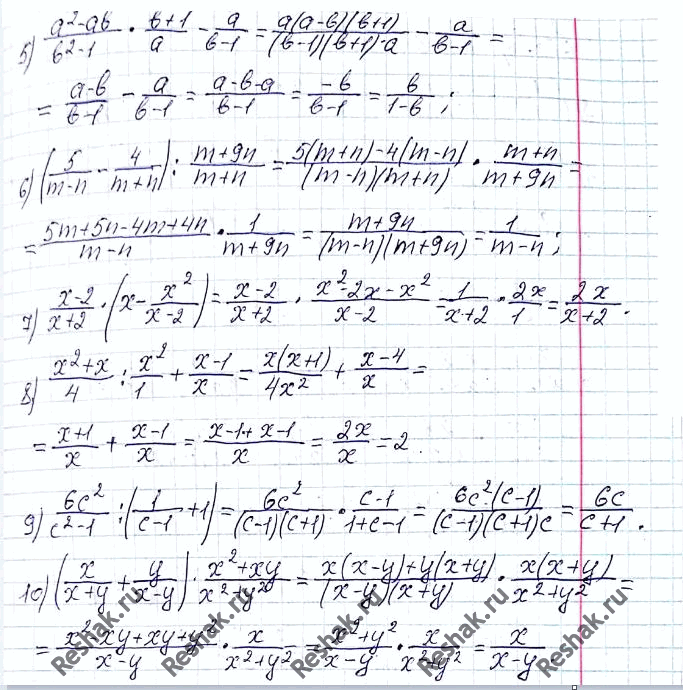 5) \frac{a^2-ab}{b^2-1} \cdot \frac{b+1}{a} - \frac{a}{b-1} = \frac{a(a-b)(b+1)}{(b-1)(b+1) \cdot a} - \frac{a}{b-1} =
= \frac{a-b}{b-1} - \frac{a}{b-1} = \frac{a-b-a}{b-1} = \frac{-b}{b-1} = \frac{b}{1-b};
6) \left(\frac{5}{m-n} - \frac{4}{m+n}\right) : \frac{m+9n}{m+n} = \frac{5(m+n)-4(m-n)}{(m-n)(m+n)} \cdot \frac{m+n}{m+9n} =
= \frac{5m+5n-4m+4n}{m-n} \cdot \frac{1}{m+9n} = \frac{m+9n}{(m-n)(m+9n)} = \frac{1}{m-n};
7) \frac{x-2}{x+2} \cdot \left(x - \frac{x^2}{x-2}\right) = \frac{x-2}{x+2} \cdot \frac{x^2-2x-x^2}{x-2} = \frac{1}{x+2} \cdot \frac{2x}{1} = \frac{2x}{x+2}.
8) \frac{x^2+x}{4} : \frac{x^2}{1} + \frac{x-1}{x} = \frac{x(x+1)}{4x^2} + \frac{x-4}{x} =
= \frac{x+1}{x} + \frac{x-1}{x} = \frac{x-1+x-1}{x} = \frac{2x}{x} = 2.
9) \frac{6c^2}{c^2-1} : \left(\frac{1}{c-1} + 1\right) = \frac{6c^2}{(c-1)(c+1)} \cdot \frac{c-1}{1+c-1} = \frac{6c^2(c-1)}{(c-1)(c+1)c} = \frac{6c}{c+1}.
10) \left(\frac{x}{x+y} + \frac{y}{x-y}\right) \cdot \frac{x^2+xy}{x^2+y^2} = \frac{x(x-y)+y(x+y)}{(x-y)(x+y)} \cdot \frac{x(x+y)}{x^2+y^2} =
= \frac{x^2-xy+xy+y^2}{x-y} \cdot \frac{x}{x^2+y^2} = \frac{x^2+y^2}{x-y} \cdot \frac{x}{x^2+y^2} = \frac{x}{x-y}.
Reshak.ru
Reshak.ru
Reshak.ru
Reshak.ru
Reshak.ru